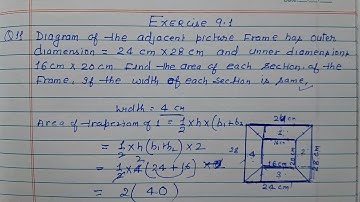 EXERCISE 9.1
Q11 Diagram of the adjacent picture Frame has outer
diamension = 24 cm x 28 cm and unner diamensions
16 cm x 20 cm Find the area of each section of the
Frame, If the width of each section is same,
width = 4 cm
Area of trapesion of 1 = 1/2 x h x (b1+b2
= 1/2 x h (b1+b2) x 2
= 1/2 x 4 (24+16)
= 2 ( 40 )
24 cm
1
16cm
4
2
28 cm
16cm
3
24 cm